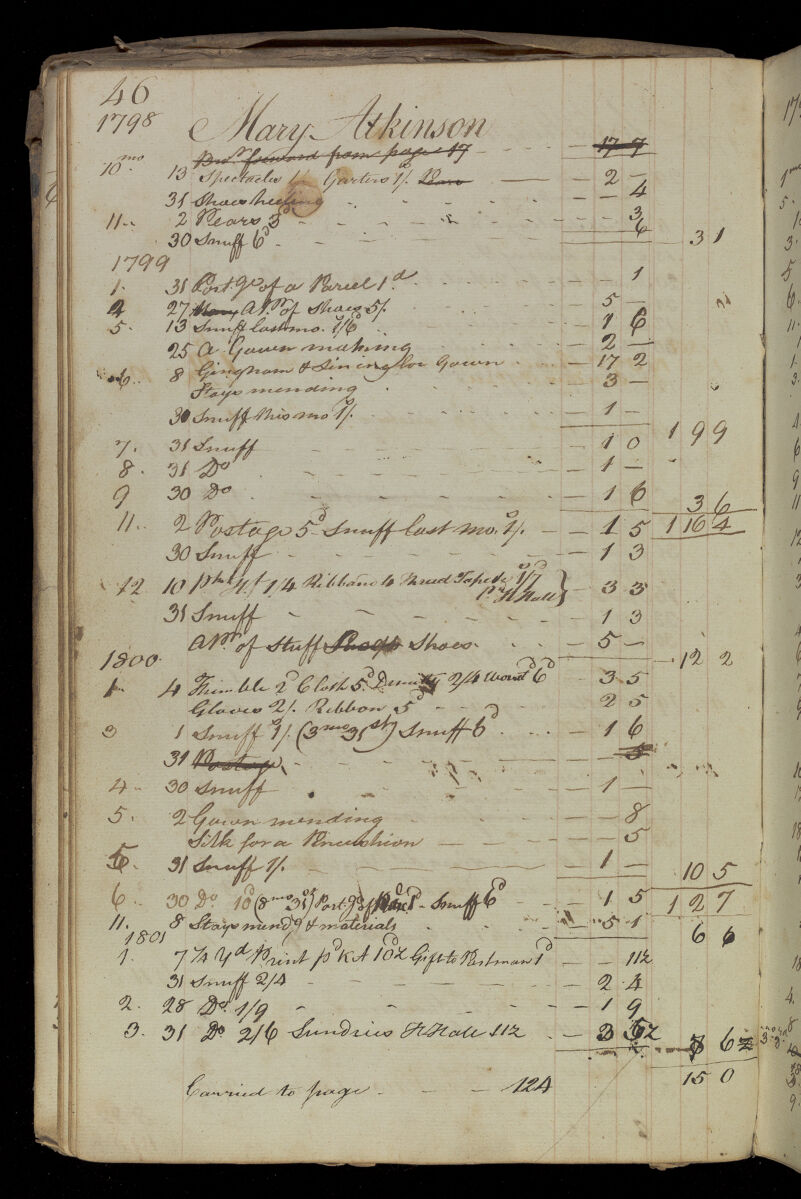 46
1798 Mary Atkinson
Bro.t forward from page 17 - - - 17 7
10mo 13 Spectacles 1/ Garters 1/. - 2 -
31 Shoes heeling - - 4
11 2 Pears 3d - - 3
30 Snuff 6d - - 6 3 1
1799
1. 31 Postge of a Parcel 1d - - 1
4 27 A Pr of Shoes 5/. - 5 -
5. 13 Snuff last mo. 1/6 - 1 6
25 A Gown making - 2 -
6. 8 Gingham & Lining for Gown - 17 2
Stays mending - 3 -
30 Snuff this mo 1/. - 1 - 1 9 9
7. 31 Snuff - 1 0
8. 31 Do - 1 -
9 30 Do - 1 6 3 6
11. 2 Postage 5d Snuff last mo. 1/. - 1 5 1 16 4
30 Snuff - 1 3
12 10 1/4 Ribbans & Thread Tape 1/7
pr H Hall } - 3 3
31 Snuff - 1 3
A Pr of Stuff Shoes - 5 - 12 2
1800
1 4 Thimble 2d Cloth 5d Demity 2/4 6d - 3 5
Gloves 2/. Ribbon 5d - 2 5
3 1 Snuff 1/. (3mo 31st) Snuff 6d - 1 6
31 Postage - - 5
4. 30 Snuff - 1 -
5. 2 Gown mending - - 8
Silk for a Pincushion - - 5
5. 31 Snuff 1/. - 1 - 10 5
6 30 Do 10d (8mo 31) Postge of 1d - Snuff 6d - 1 5 1 2 7
11. 8 Stays mendg & materials - 5 1 6 6
1801
1. 7 1/4 Yd Print pd K A 10d½ Gift to Postman 1d - - 11½
31 Snuff 2/4 - 2 4
2. 28 Do 1/9 - 1 9
3. 31 Do 2/6 Sundries H Hall 11½ - 3 5½ 8 6
Carried to page - - 124 15 0